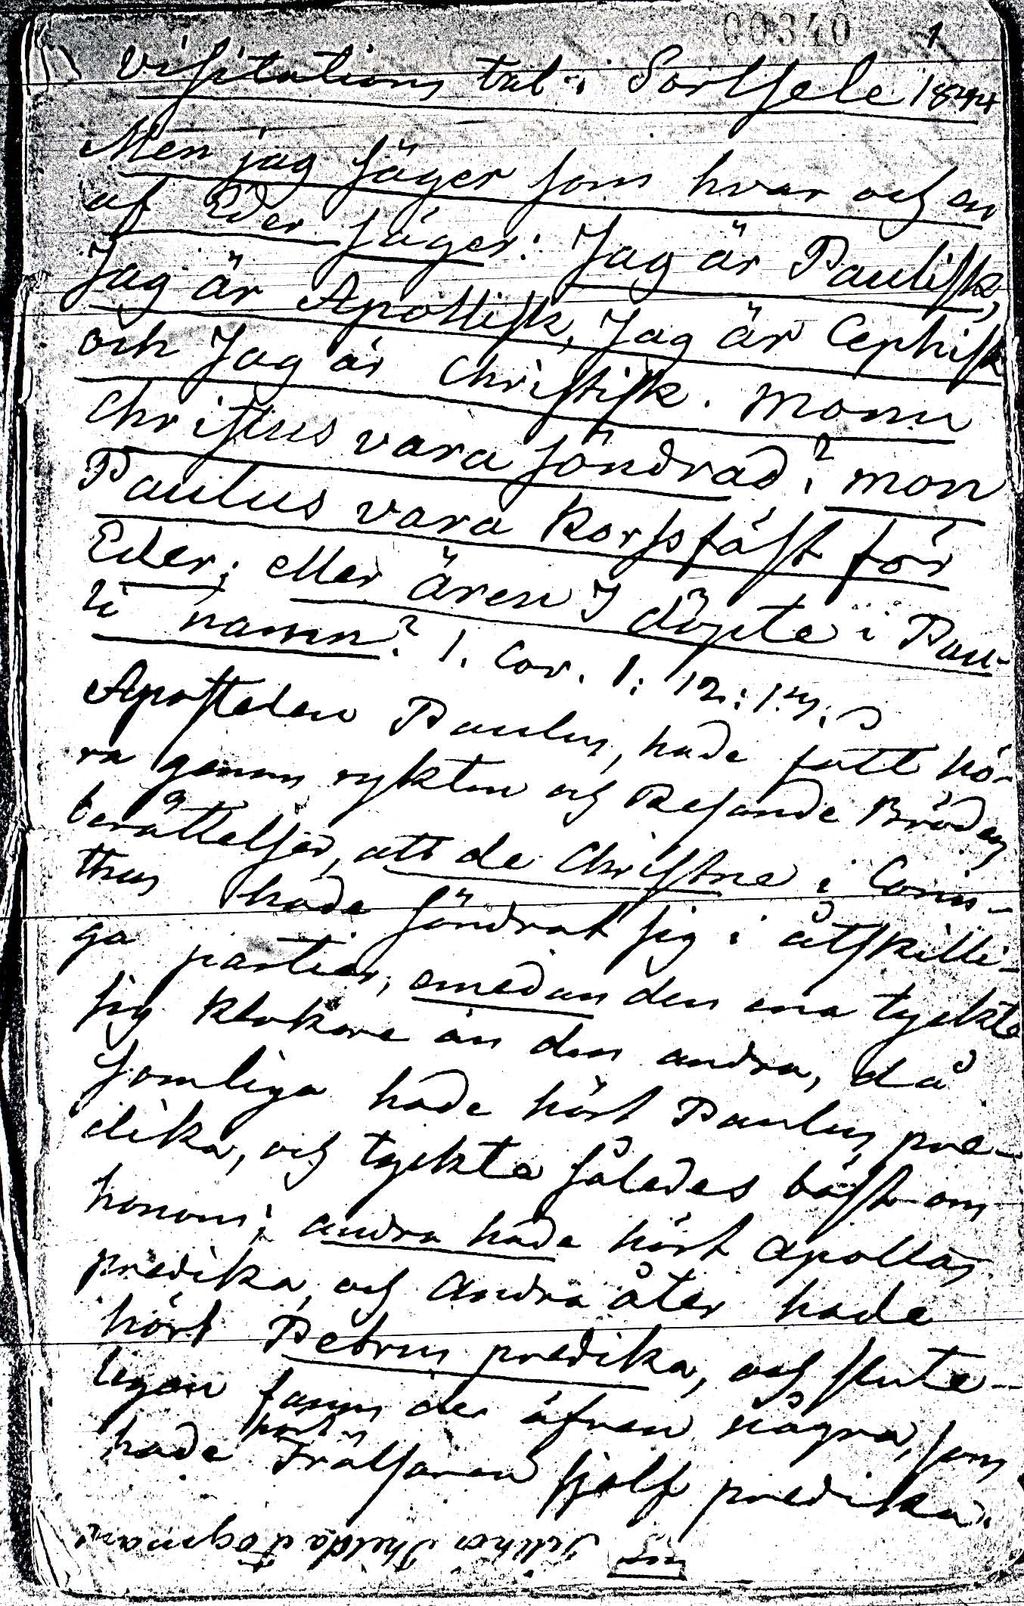 00340 1
Visitations tal i Sortsele 1844
Men jag säger som hvar och en
af Eder säger: Jag är Paulisk,
Jag är Apollisk, Jag är Cephisk
och Jag är Christisk. monn
Christus vara söndrad? mon
Paulus vara korssfäst för
Eder; eller ären I döpte i Pau-
li namn? 1. Cor. 1: 12: 13.
Apostelen Paulus, hade fått hö-
ra genom rykten och Resande Bröders
berättelser, att de Christne i Corin-
thus hade söndrat sig i åtskilli-
ga partier, emedan den ena tyckte
sig klokare än den andra, då
somliga hade hört Paulus pre-
dika, och tyckte således bäst om
honom; andra hade hört Apollas
predika, och Andra åter hade
hört Petrus predika, och slute-
ligen fanns der äfven några, som
hade hört Frälsaren sjelf predika.